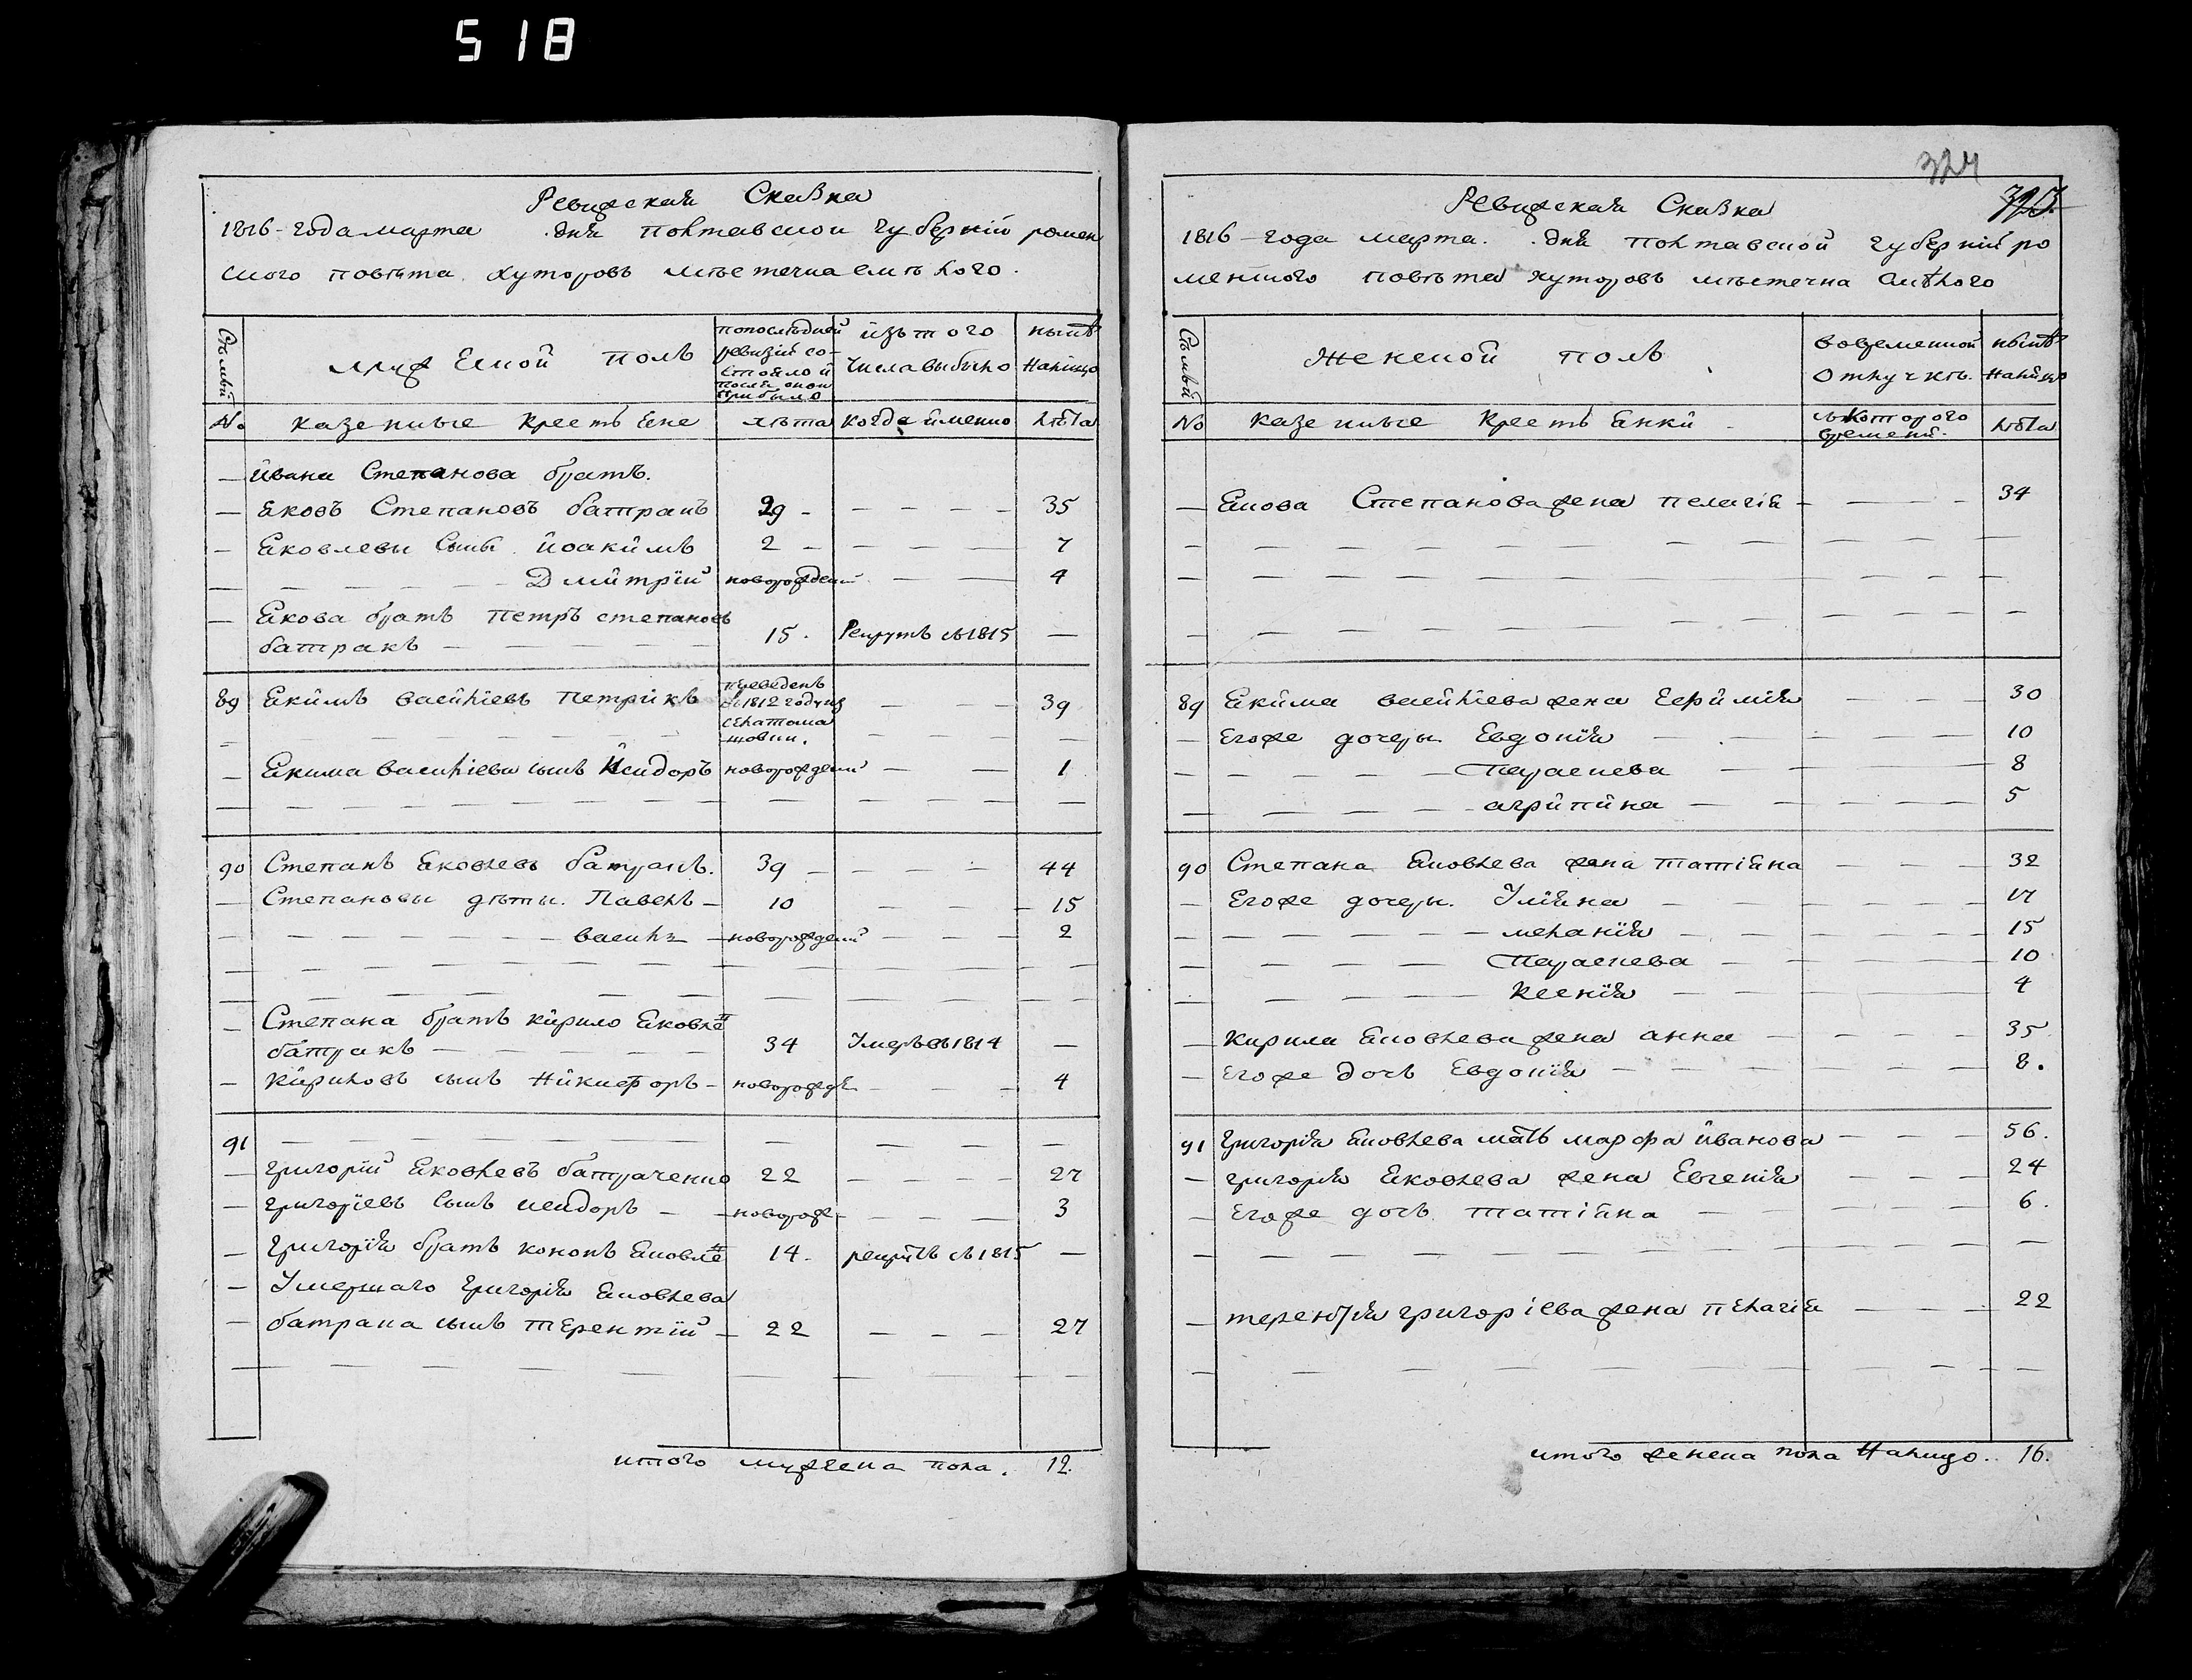 518
Ревижская Сказка
1816-года марта дня полтавской губерніи ромен
ского повѣта хуторовъ мѣстечка смѣлого.
Сѣмьи
муж Еской полъ
попослѣдней ревизіи состояло и после оной прибыло
изъ того числа выбыло
нынѣ налицо
№ казенные крестьяне лѣта когда именно лѣта
— Ивана Степанова братъ.
— Яковъ Степановъ батракъ 29 — — — — 35
— Яковлевы сыны Иоакимъ 2 — — — 7
— — — — Дмитрій новорожден — — 4
— Якова братъ Петръ степановъ
батракъ — — — — 15. Рекрутъ въ 1815 —
89 Якимъ васильевъ Петрикъ переведенъ въ 1812 году из — — — 39
— Якима васильева сынъ Исидоръ новорожденій — — 1
90 Степанъ Яковлевъ батракъ. 39 — — — — 44
— Степановы дѣты. Павелъ — 10 — — — 15
— — — — василь — новорожденій — — — 2
— Степана братъ кирило Яковле
батракъ — — — — 34 Умеръ въ 1814 —
— Кириловъ сынъ Никифоръ — новорожде — — — 4
91 — — — — — —
— григорій Яковлевъ батраченко 22 — — — — 27
— григоріевъ сынъ исидоръ — новорож — — — — 3
— Григорія братъ кононъ Яковле 14. рекрутъ въ 1815 —
— Умершаго григорія Яковлева
— батрака сынъ терентій — 22 — — — 27
итого мужеска пола. 12.
324
Ревижская Сказка
1816-года марта. дня полтавской губерніи ро
менского повѣта хуторовъ мѣстечка смѣлого
Сѣмьи
женской полъ
вовременной отлучкѣ.
нынѣ налицо
№ казенные крестьянки съ которого времени. лѣта
— Якова Степанова жена пелагія — — — — 34
89 Якима василіева жена Ефимія — — — 30
— Егоже дочеры Евдокія — — — — 10
— — — — Параскева — — — — 8
— — — — агрипина — — — — 5
90 Степана Яковлева жена татіяна — — — 32
— Егоже дочеры. Уліяна — — — — 17
— — — — меланія — — — — 15
— — — — Параскева — — — — 10
— — — — Ксенія — — — — 4
— Кирила Яковлева жена анна — — — — 35
— Егоже дочь Евдокія — — — — 8.
91 Григорія Яковлева мать марфа иванова — — — 56.
— григорія Яковлева жена Евгенія — — — 24
— Егоже дочь татіяна — — — — 6.
— терентія григоріева жена пелагія — — — 22
итого женска пола налицо. 16.